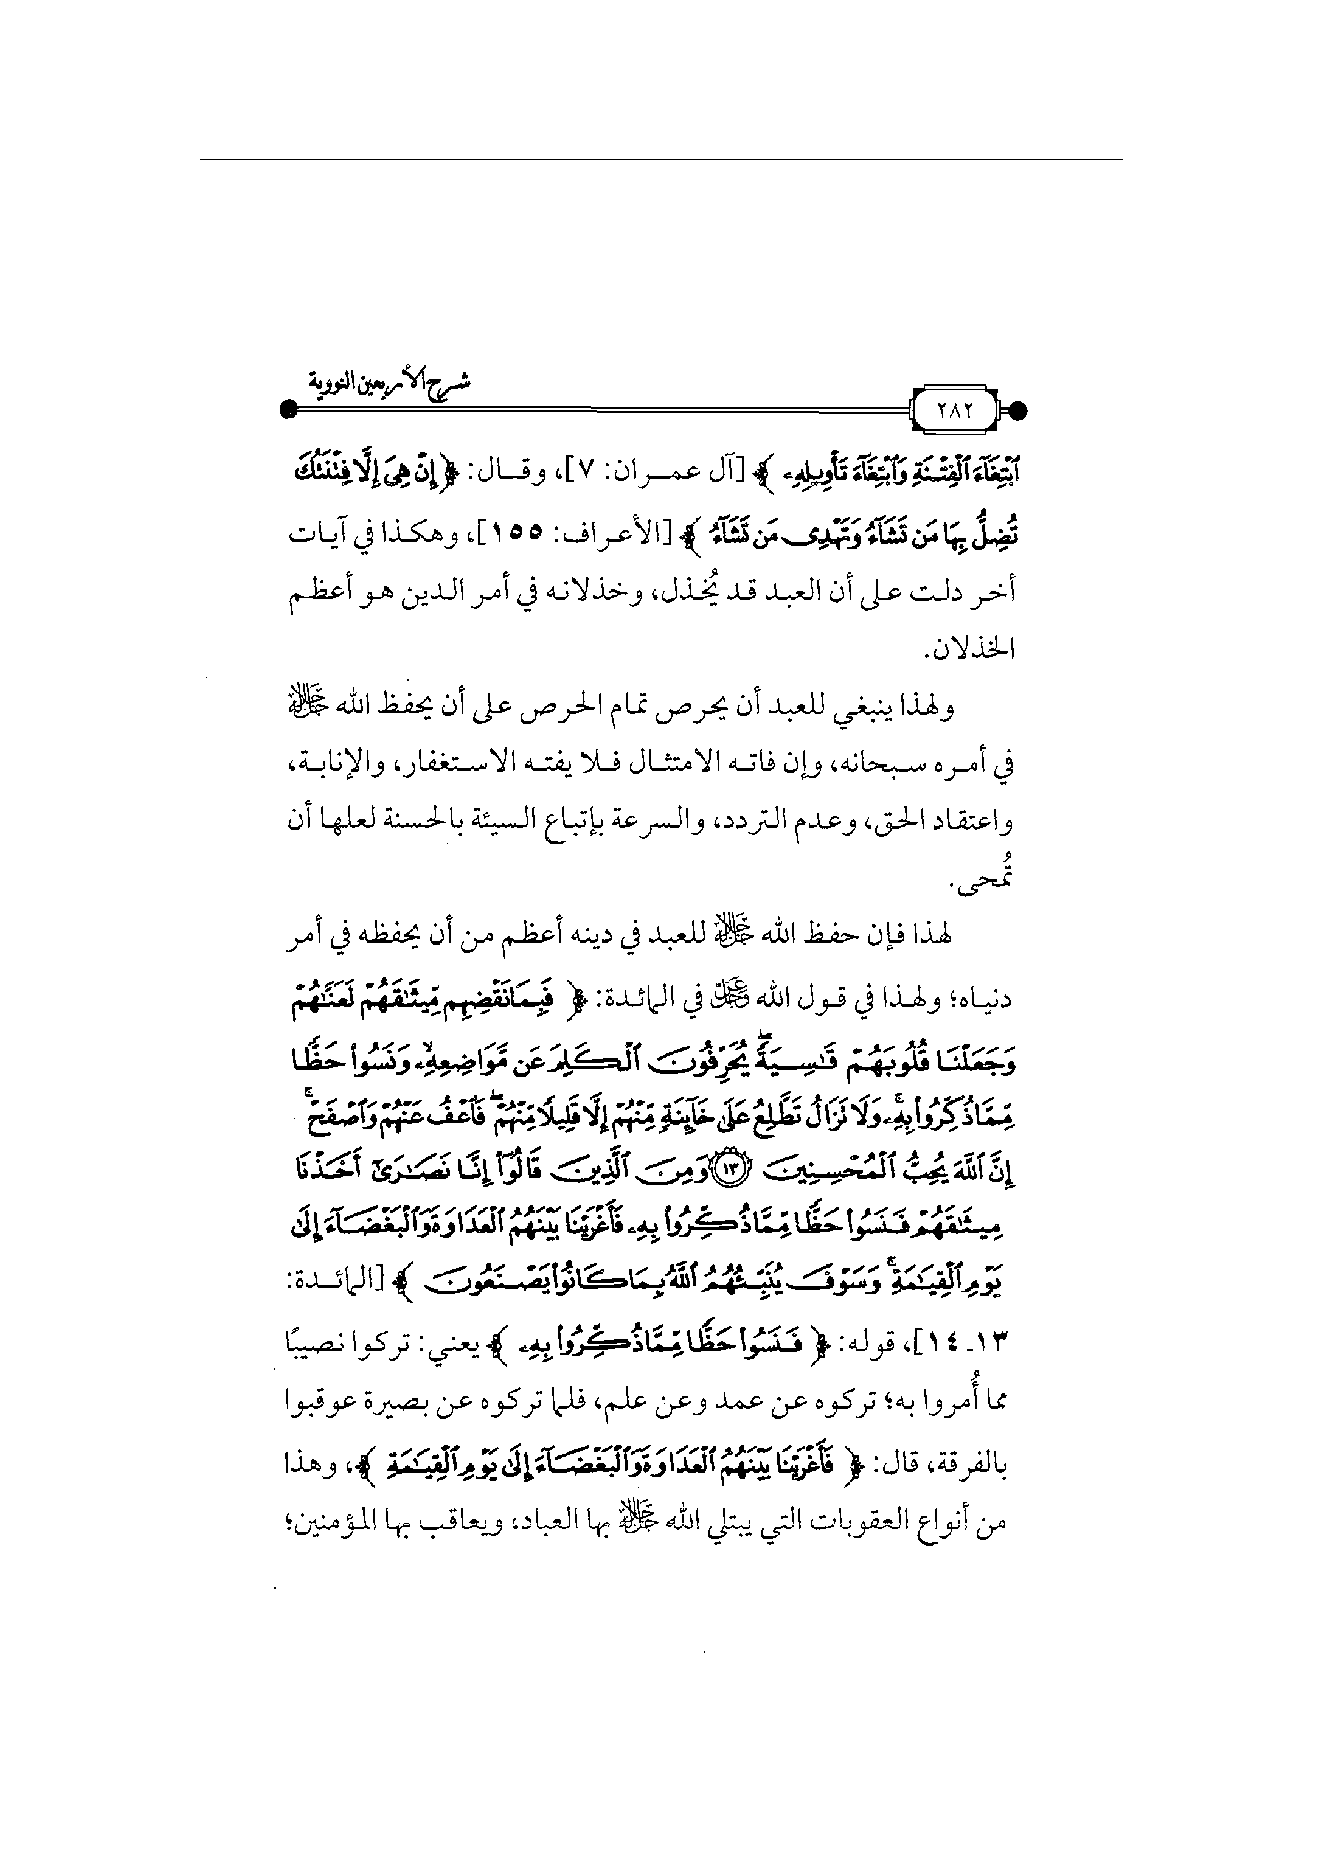 شرح الأربعين النووية
٢٨٢
ٱبْتِغَآءَ ٱلْفِتْنَةِ وَٱبْتِغَآءَ تَأْوِيلِهِۦ ﴾ [آل عمران: ٧]، وقال: ﴿ إِنْ هِىَ إِلَّا فِتْنَتُكَ
تُضِلُّ بِهَا مَن تَشَآءُ وَتَهْدِى مَن تَشَآءُ ﴾ [الأعراف: ١٥٥]، وهكذا في آيات
أخر دلت على أن العبد قد يُخذل، وخذلانه في أمر الدين هو أعظم
الخذلان.
ولهذا ينبغي للعبد أن يحرص تمام الحرص على أن يحفظ الله ﷻ
في أمره سبحانه، وإن فاته الامتثال فلا يفته الاستغفار، والإنابة،
واعتقاد الحق، وعدم التردد، والسرعة بإتباع السيئة بالحسنة لعلها أن
تُمحى.
لهذا فإن حفظ الله ﷻ للعبد في دينه أعظم من أن يحفظه في أمر
دنياه؛ ولهذا في قول الله ﷻ في المائدة: ﴿ فَبِمَا نَقْضِهِم مِّيثَٰقَهُمْ لَعَنَّٰهُمْ
وَجَعَلْنَا قُلُوبَهُمْ قَٰسِيَةً ۖ يُحَرِّفُونَ ٱلْكَلِمَ عَن مَّوَاضِعِهِۦ ۙ وَنَسُوا۟ حَظًّا
مِّمَّا ذُكِّرُوا۟ بِهِۦ ۚ وَلَا تَزَالُ تَطَّلِعُ عَلَىٰ خَآئِنَةٍ مِّنْهُمْ إِلَّا قَلِيلًا مِّنْهُمْ ۖ فَٱعْفُ عَنْهُمْ وَٱصْفَحْ ۚ
إِنَّ ٱللَّهَ يُحِبُّ ٱلْمُحْسِنِينَ ﴿١٣﴾ وَمِنَ ٱلَّذِينَ قَالُوٓا۟ إِنَّا نَصَٰرَىٰٓ أَخَذْنَا
مِيثَٰقَهُمْ فَنَسُوا۟ حَظًّا مِّمَّا ذُكِّرُوا۟ بِهِۦ فَأَغْرَيْنَا بَيْنَهُمُ ٱلْعَدَاوَةَ وَٱلْبَغْضَآءَ إِلَىٰ
يَوْمِ ٱلْقِيَٰمَةِ ۚ وَسَوْفَ يُنَبِّئُهُمُ ٱللَّهُ بِمَا كَانُوا۟ يَصْنَعُونَ ﴾ [المائدة:
١٣ـ ١٤]، قوله: ﴿ فَنَسُوا۟ حَظًّا مِّمَّا ذُكِّرُوا۟ بِهِۦ ﴾ يعني: تركوا نصيبًا
مما أُمروا به؛ تركوه عن عمد وعن علم، فلما تركوه عن بصيرة عوقبوا
بالفرقة، قال: ﴿ فَأَغْرَيْنَا بَيْنَهُمُ ٱلْعَدَاوَةَ وَٱلْبَغْضَآءَ إِلَىٰ يَوْمِ ٱلْقِيَٰمَةِ ﴾، وهذا
من أنواع العقوبات التي يبتلي الله ﷻ بها العباد، ويعاقب بها المؤمنين؛